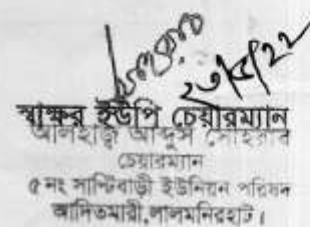 ২৩/৫/২২
স্বাক্ষর ইউপি চেয়ারম্যান
আলহাজ্ব আব্দুস সোহরাব
চেয়ারম্যান
৫ নং সাপ্টিবাড়ী ইউনিয়ন পরিষদ
আদিতমারী,লালমনিরহাট।